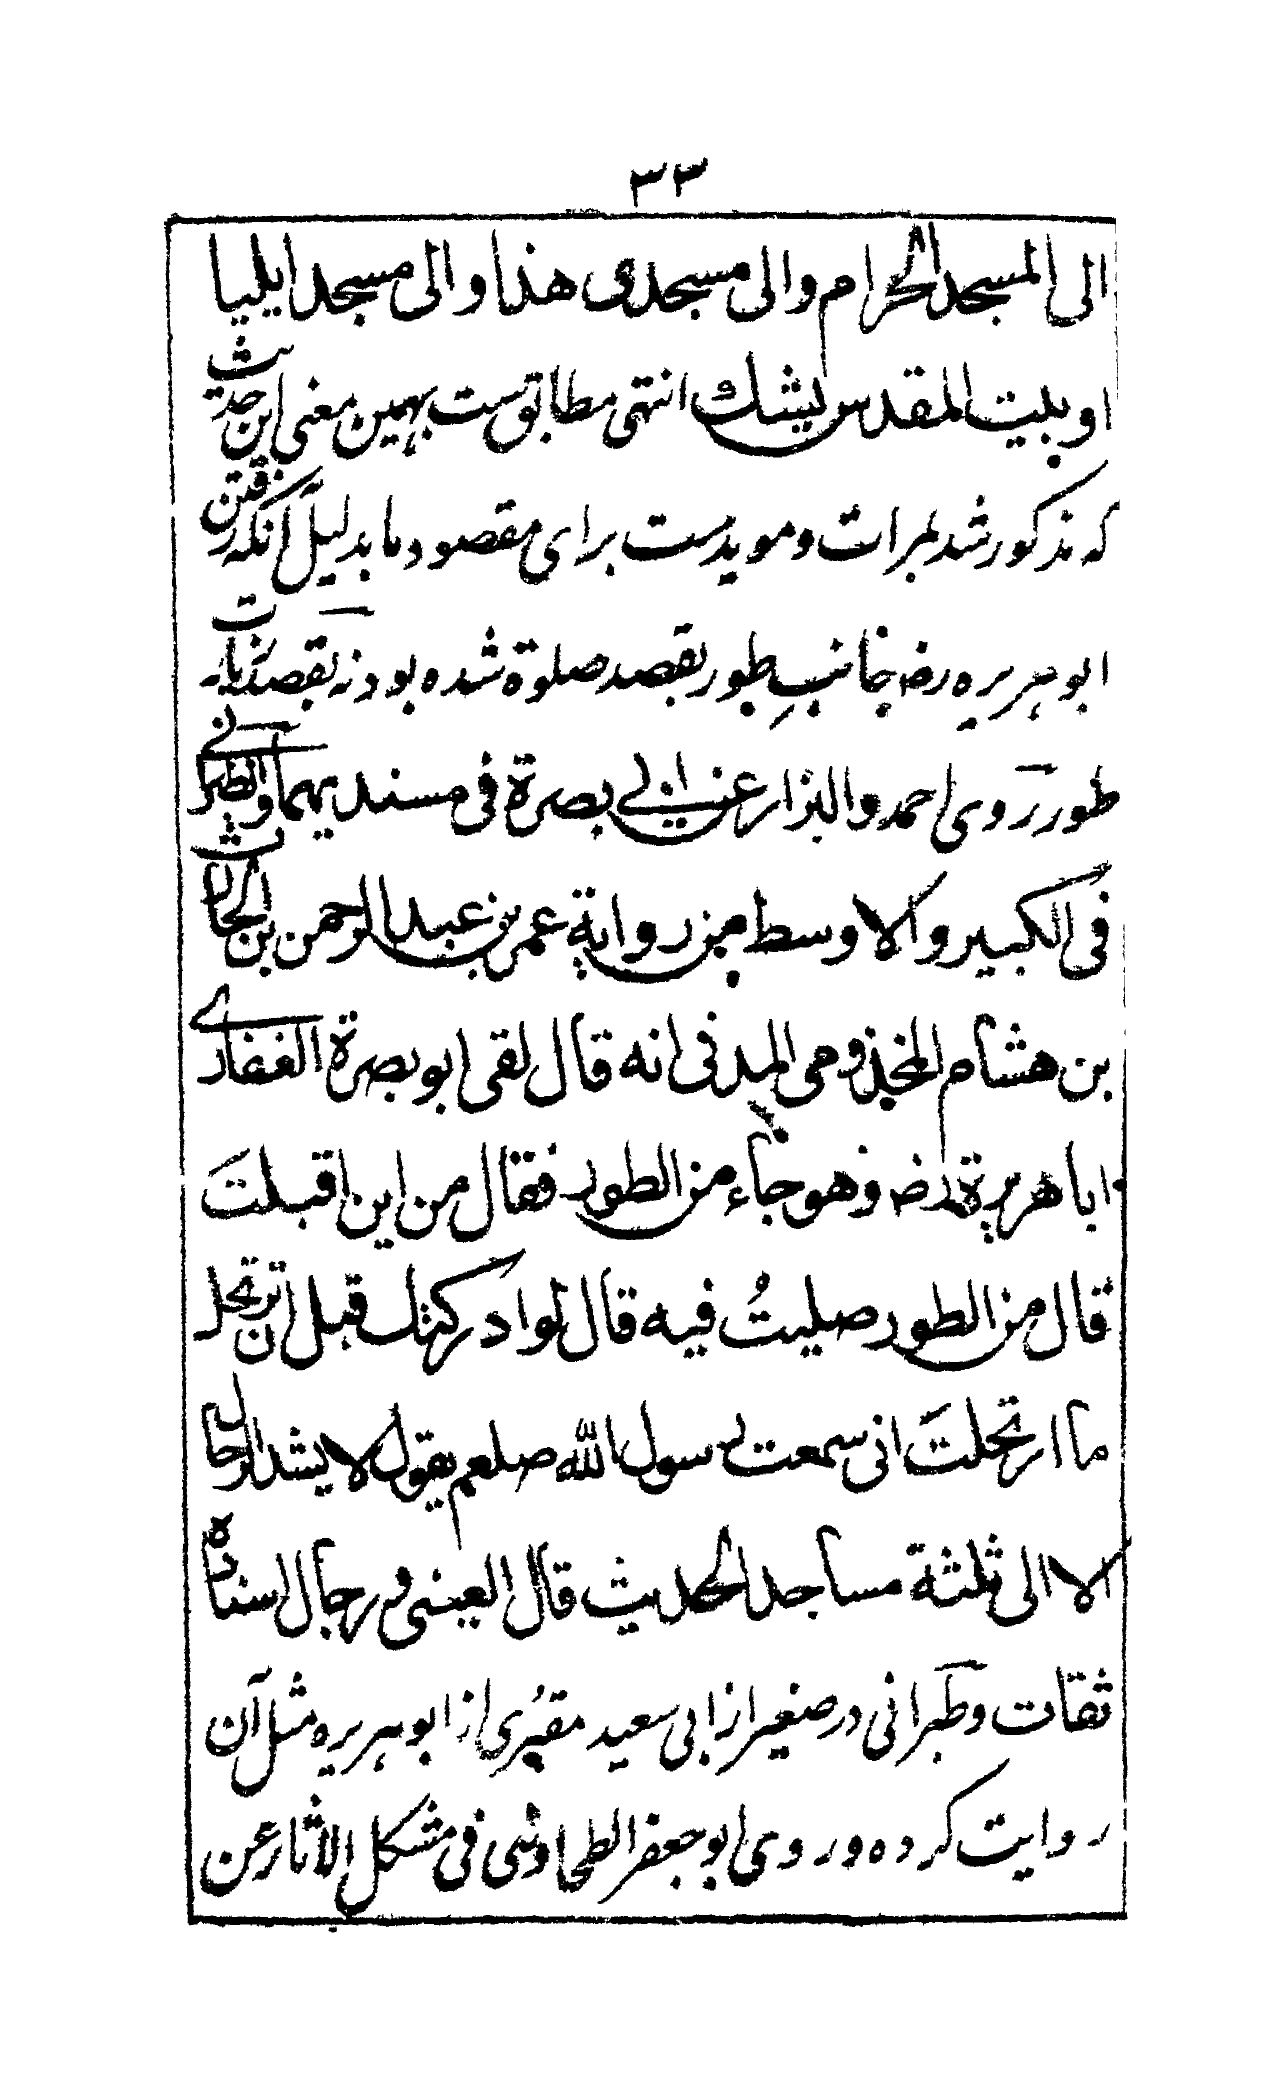 ٣٣
الى المسجد الحرام والى مسجدى هذا والى مسجد ايليا
او بيت المقدس يشك انتهى مطابق ست بهمين معنى اين حديث
كه مذكور شد لمرات و مويد ست براى مقصود ما بدليل آنكه رفتن
ابو هريره رضه جانبِ طور بقصد صلوة شده بود نه بقصد زيارت
طور روى احمد والبزار عن ابى بصرة فى مسنديهما والطبرانے
فى الكبير والاوسط من رواية عمر بن عبد الرحمن بن الحارث
بن هشام المخذومى المدنى انه قال لقى ابو بصرة الغفارے
ابا هريرة رضه وهو جاء من الطور فقال من اين اقبلتَ
قال من الطور صليتُ فيه قال لو ادركتك قبل ان ترتحل
ما ارتحلتَ انى سمعت رسول الله صلعم يقول لا يشد الرحال
الا الى ثلثة مساجد الحديث قال العينى و رجال اسناده
ثقات و طبرانى در صغير از ابى سعيد مقبُرى از ابو هريره مثل آن
روايت كرده و روى ابو جعفر الطحاوى فى مشكل الاثار عن